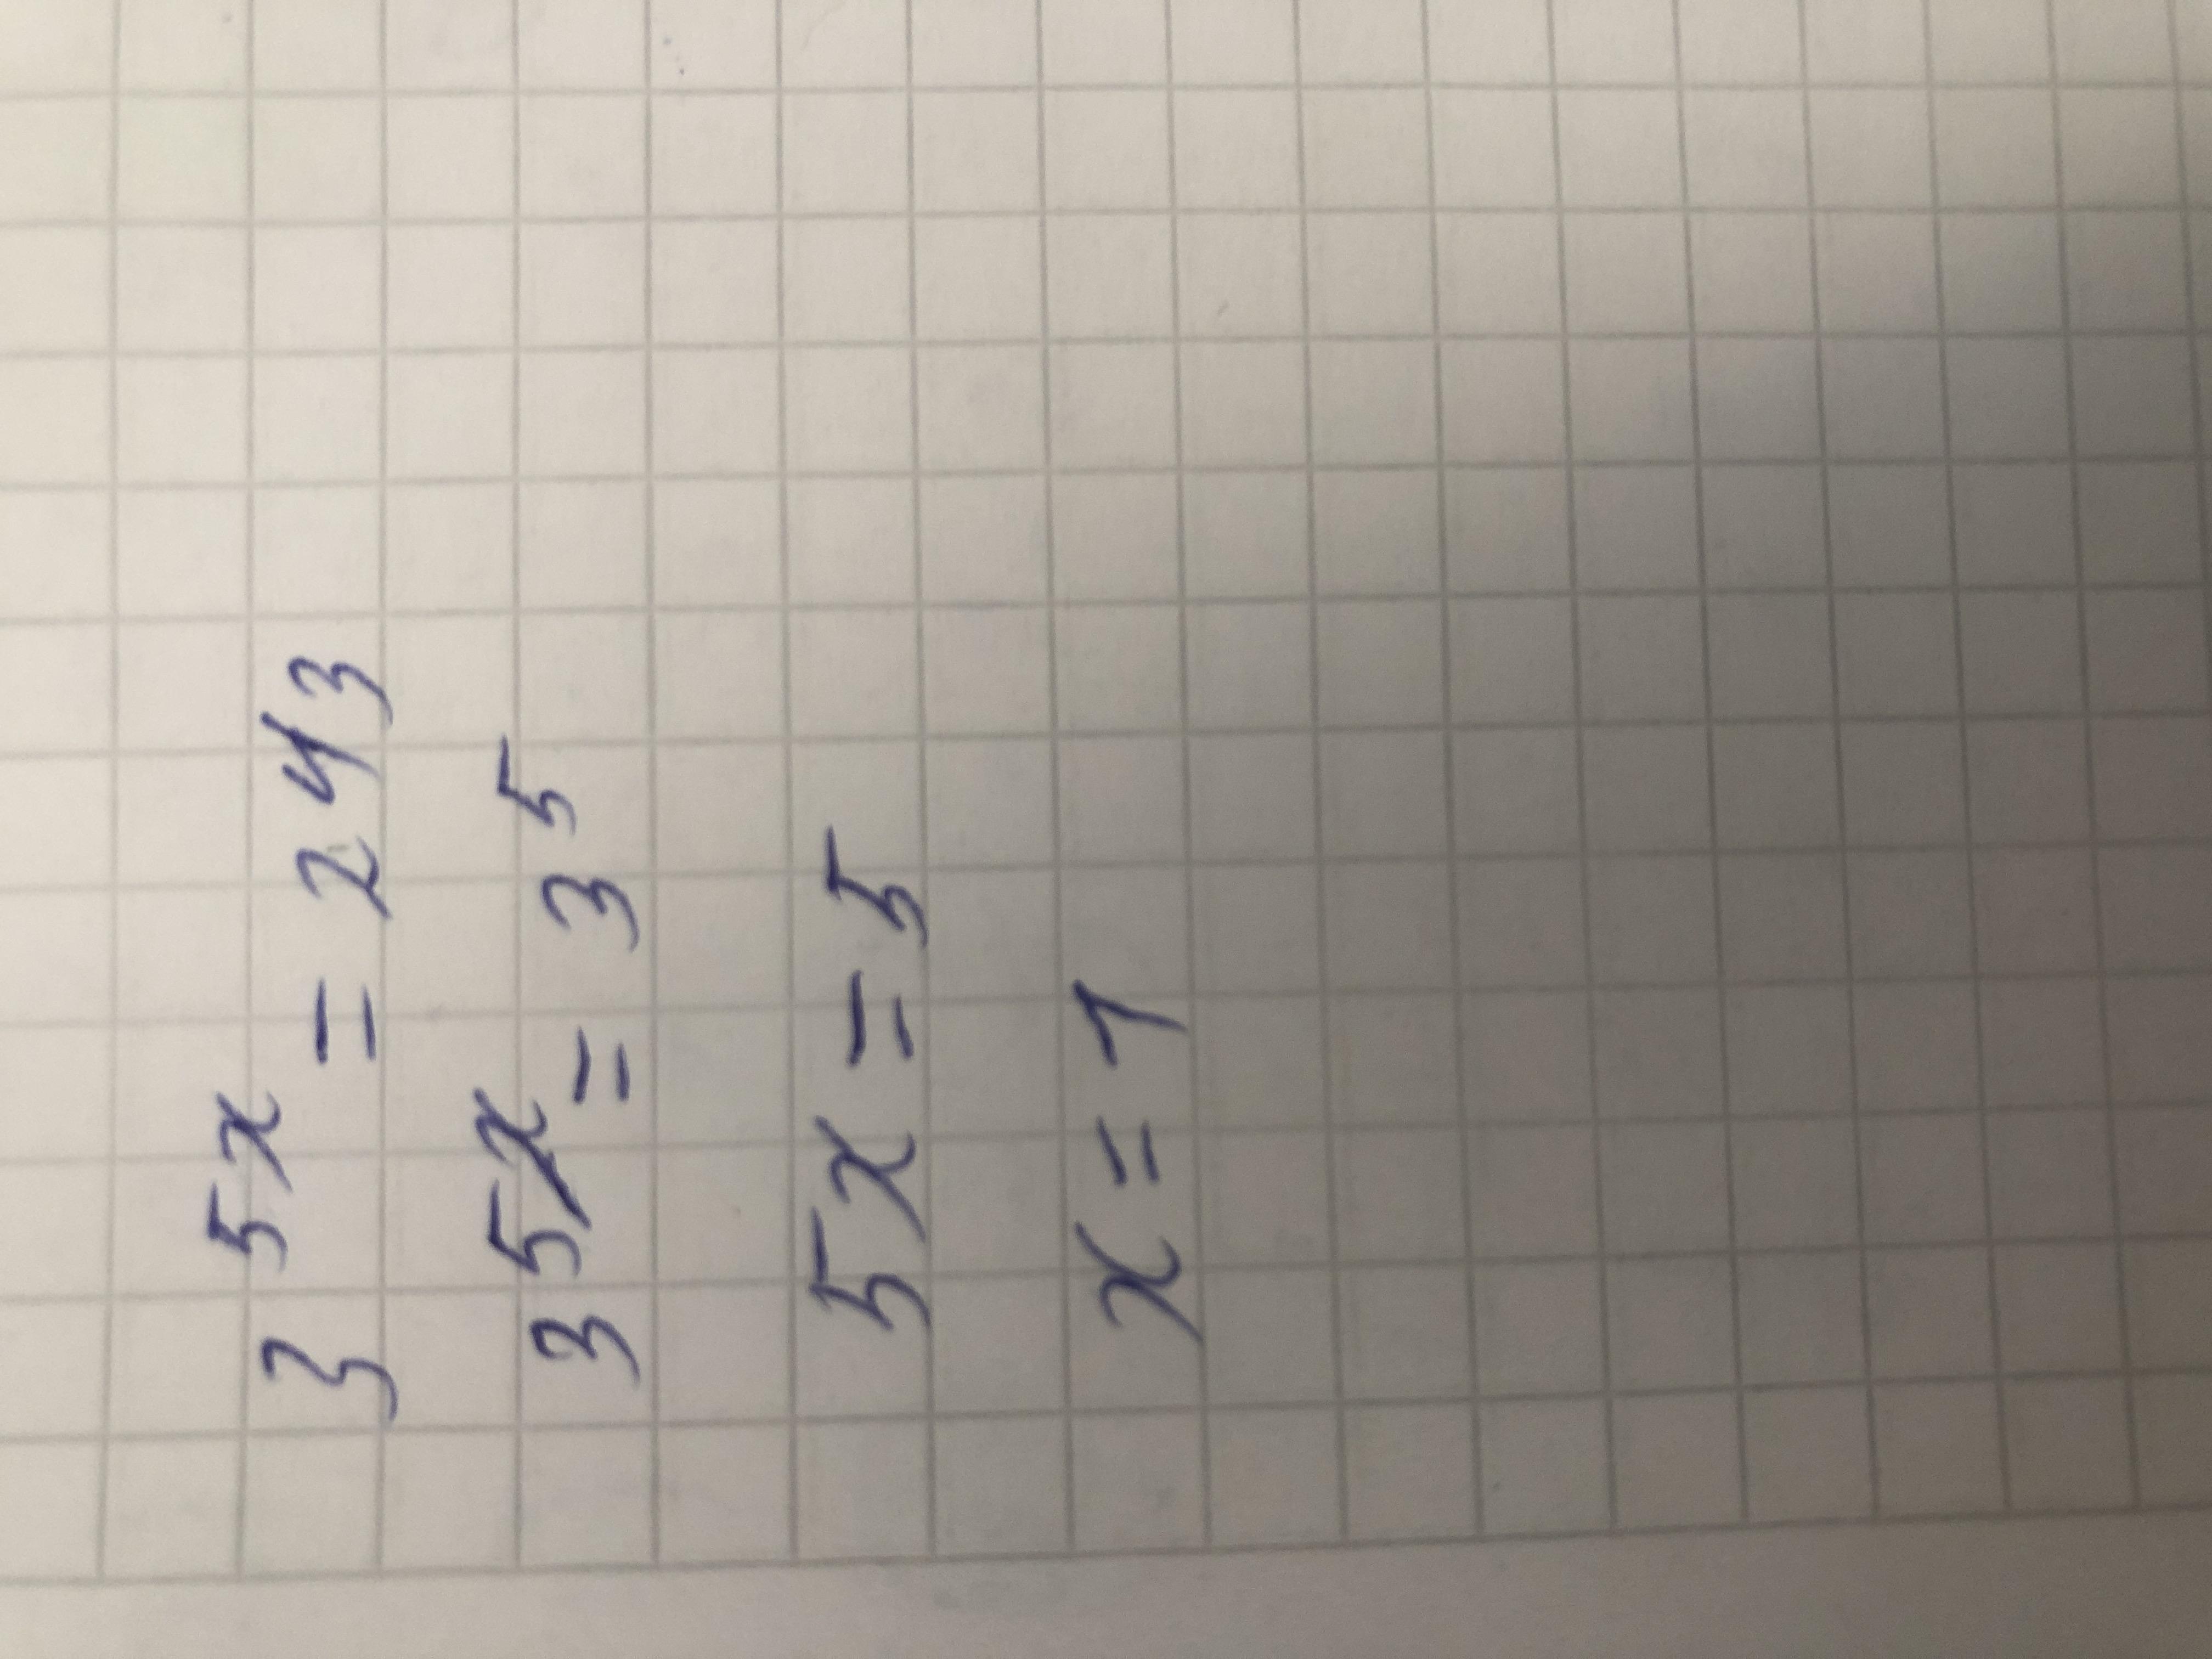 3^{5x} = 243
3^{5x} = 3^5
5x = 5
x = 1